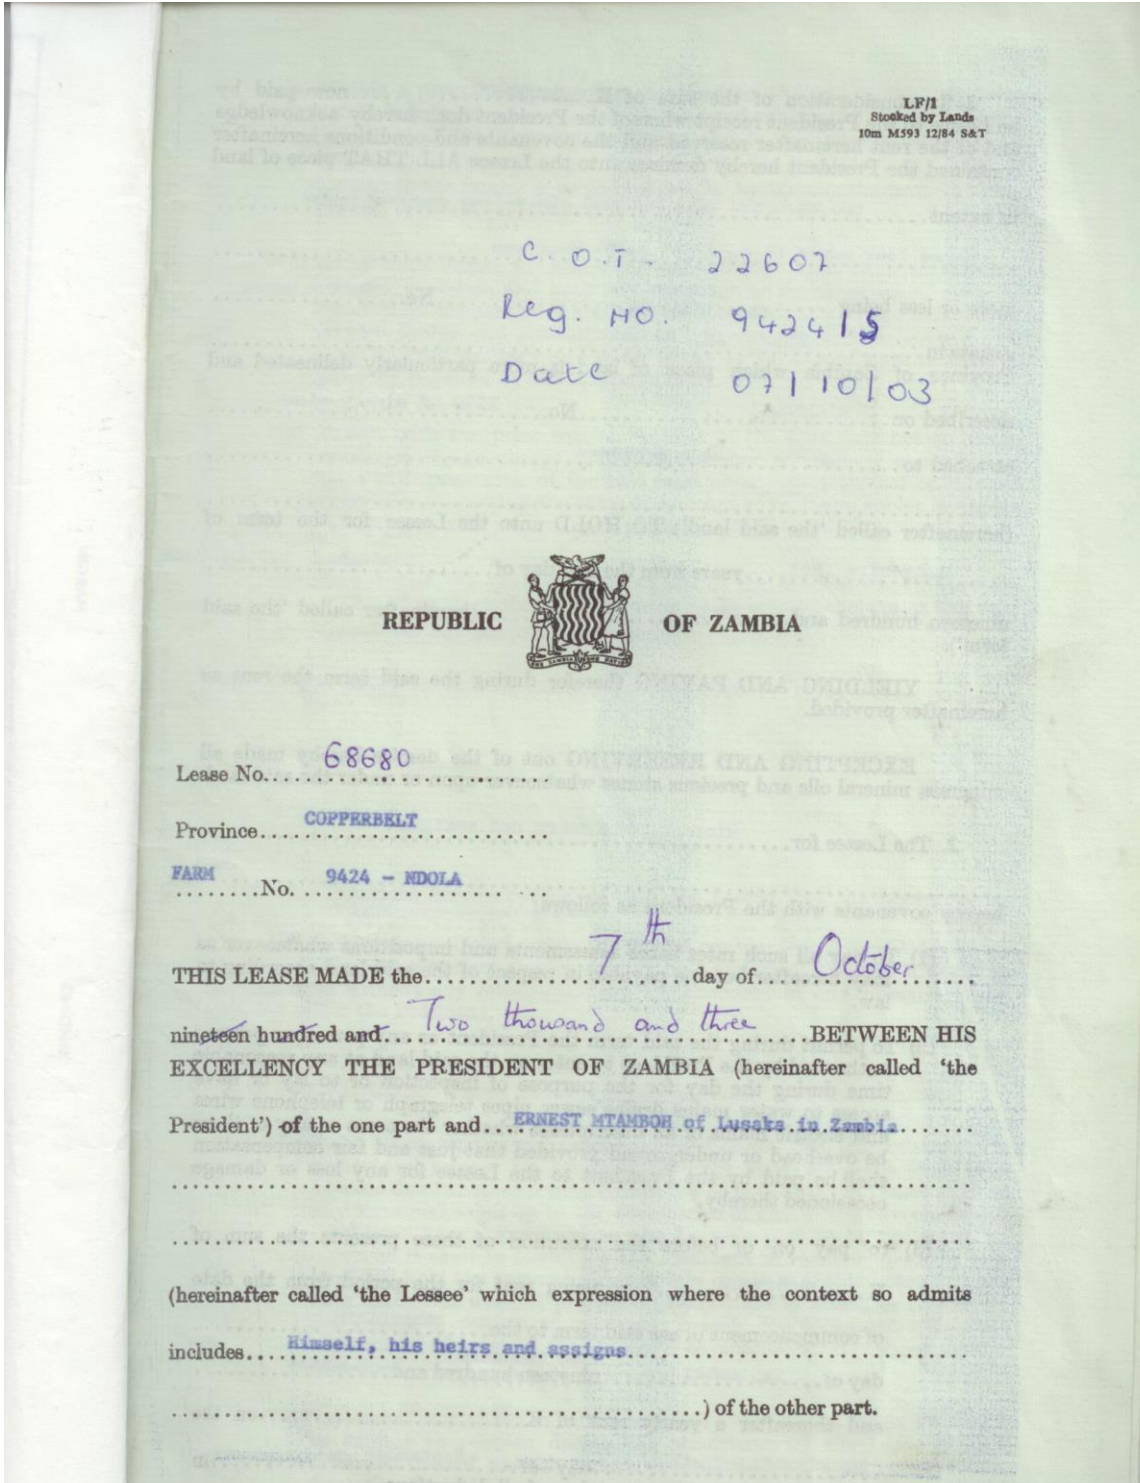 LF/1
Stocked by Lands
10m M593 12/84 S&T
C.O.T. 22607
Reg. NO. 942415
Date 07/10/03
REPUBLIC OF ZAMBIA
Lease No. 68680
Province COPPERBELT
FARM No. 9424 - NDOLA
THIS LEASE MADE the 7th day of October
nineteen hundred and Two thousand and three BETWEEN HIS
EXCELLENCY THE PRESIDENT OF ZAMBIA (hereinafter called 'the
President') of the one part and ERNEST MTAMBOH of Lusaka in Zambia
(hereinafter called 'the Lessee' which expression where the context so admits
includes Himself, his heirs and assigns
) of the other part.